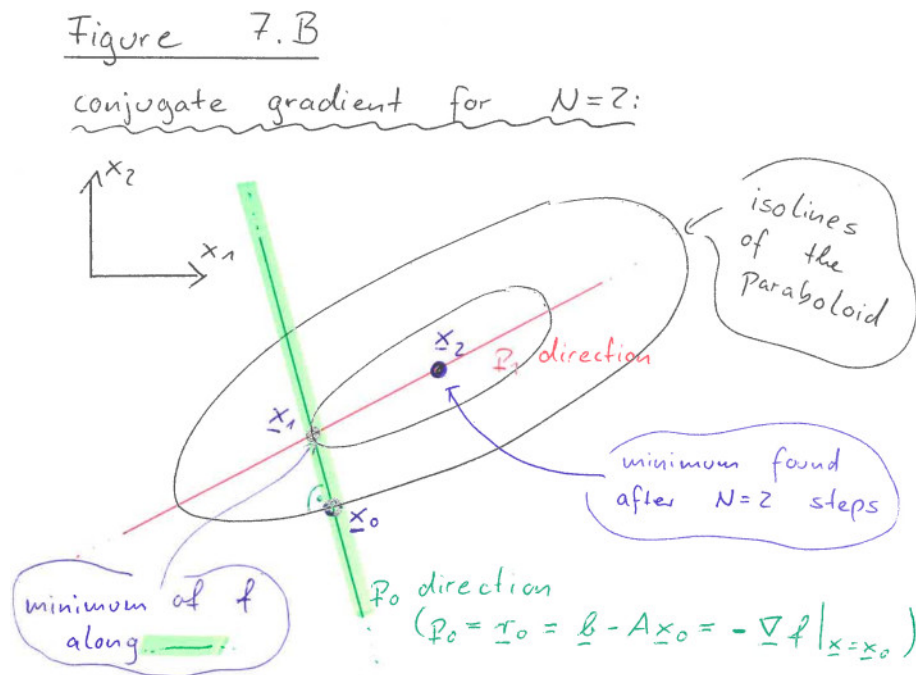 Figure 7.B
conjugate gradient for N=2:
x₂
x₁
isolines
of the
paraboloid
x₂
p₁ direction
x₁
minimum found
after N=2 steps
x₀
minimum of f
along
p₀ direction
(p₀ = r₀ = b - A x₀ = - ∇f|x=x₀)